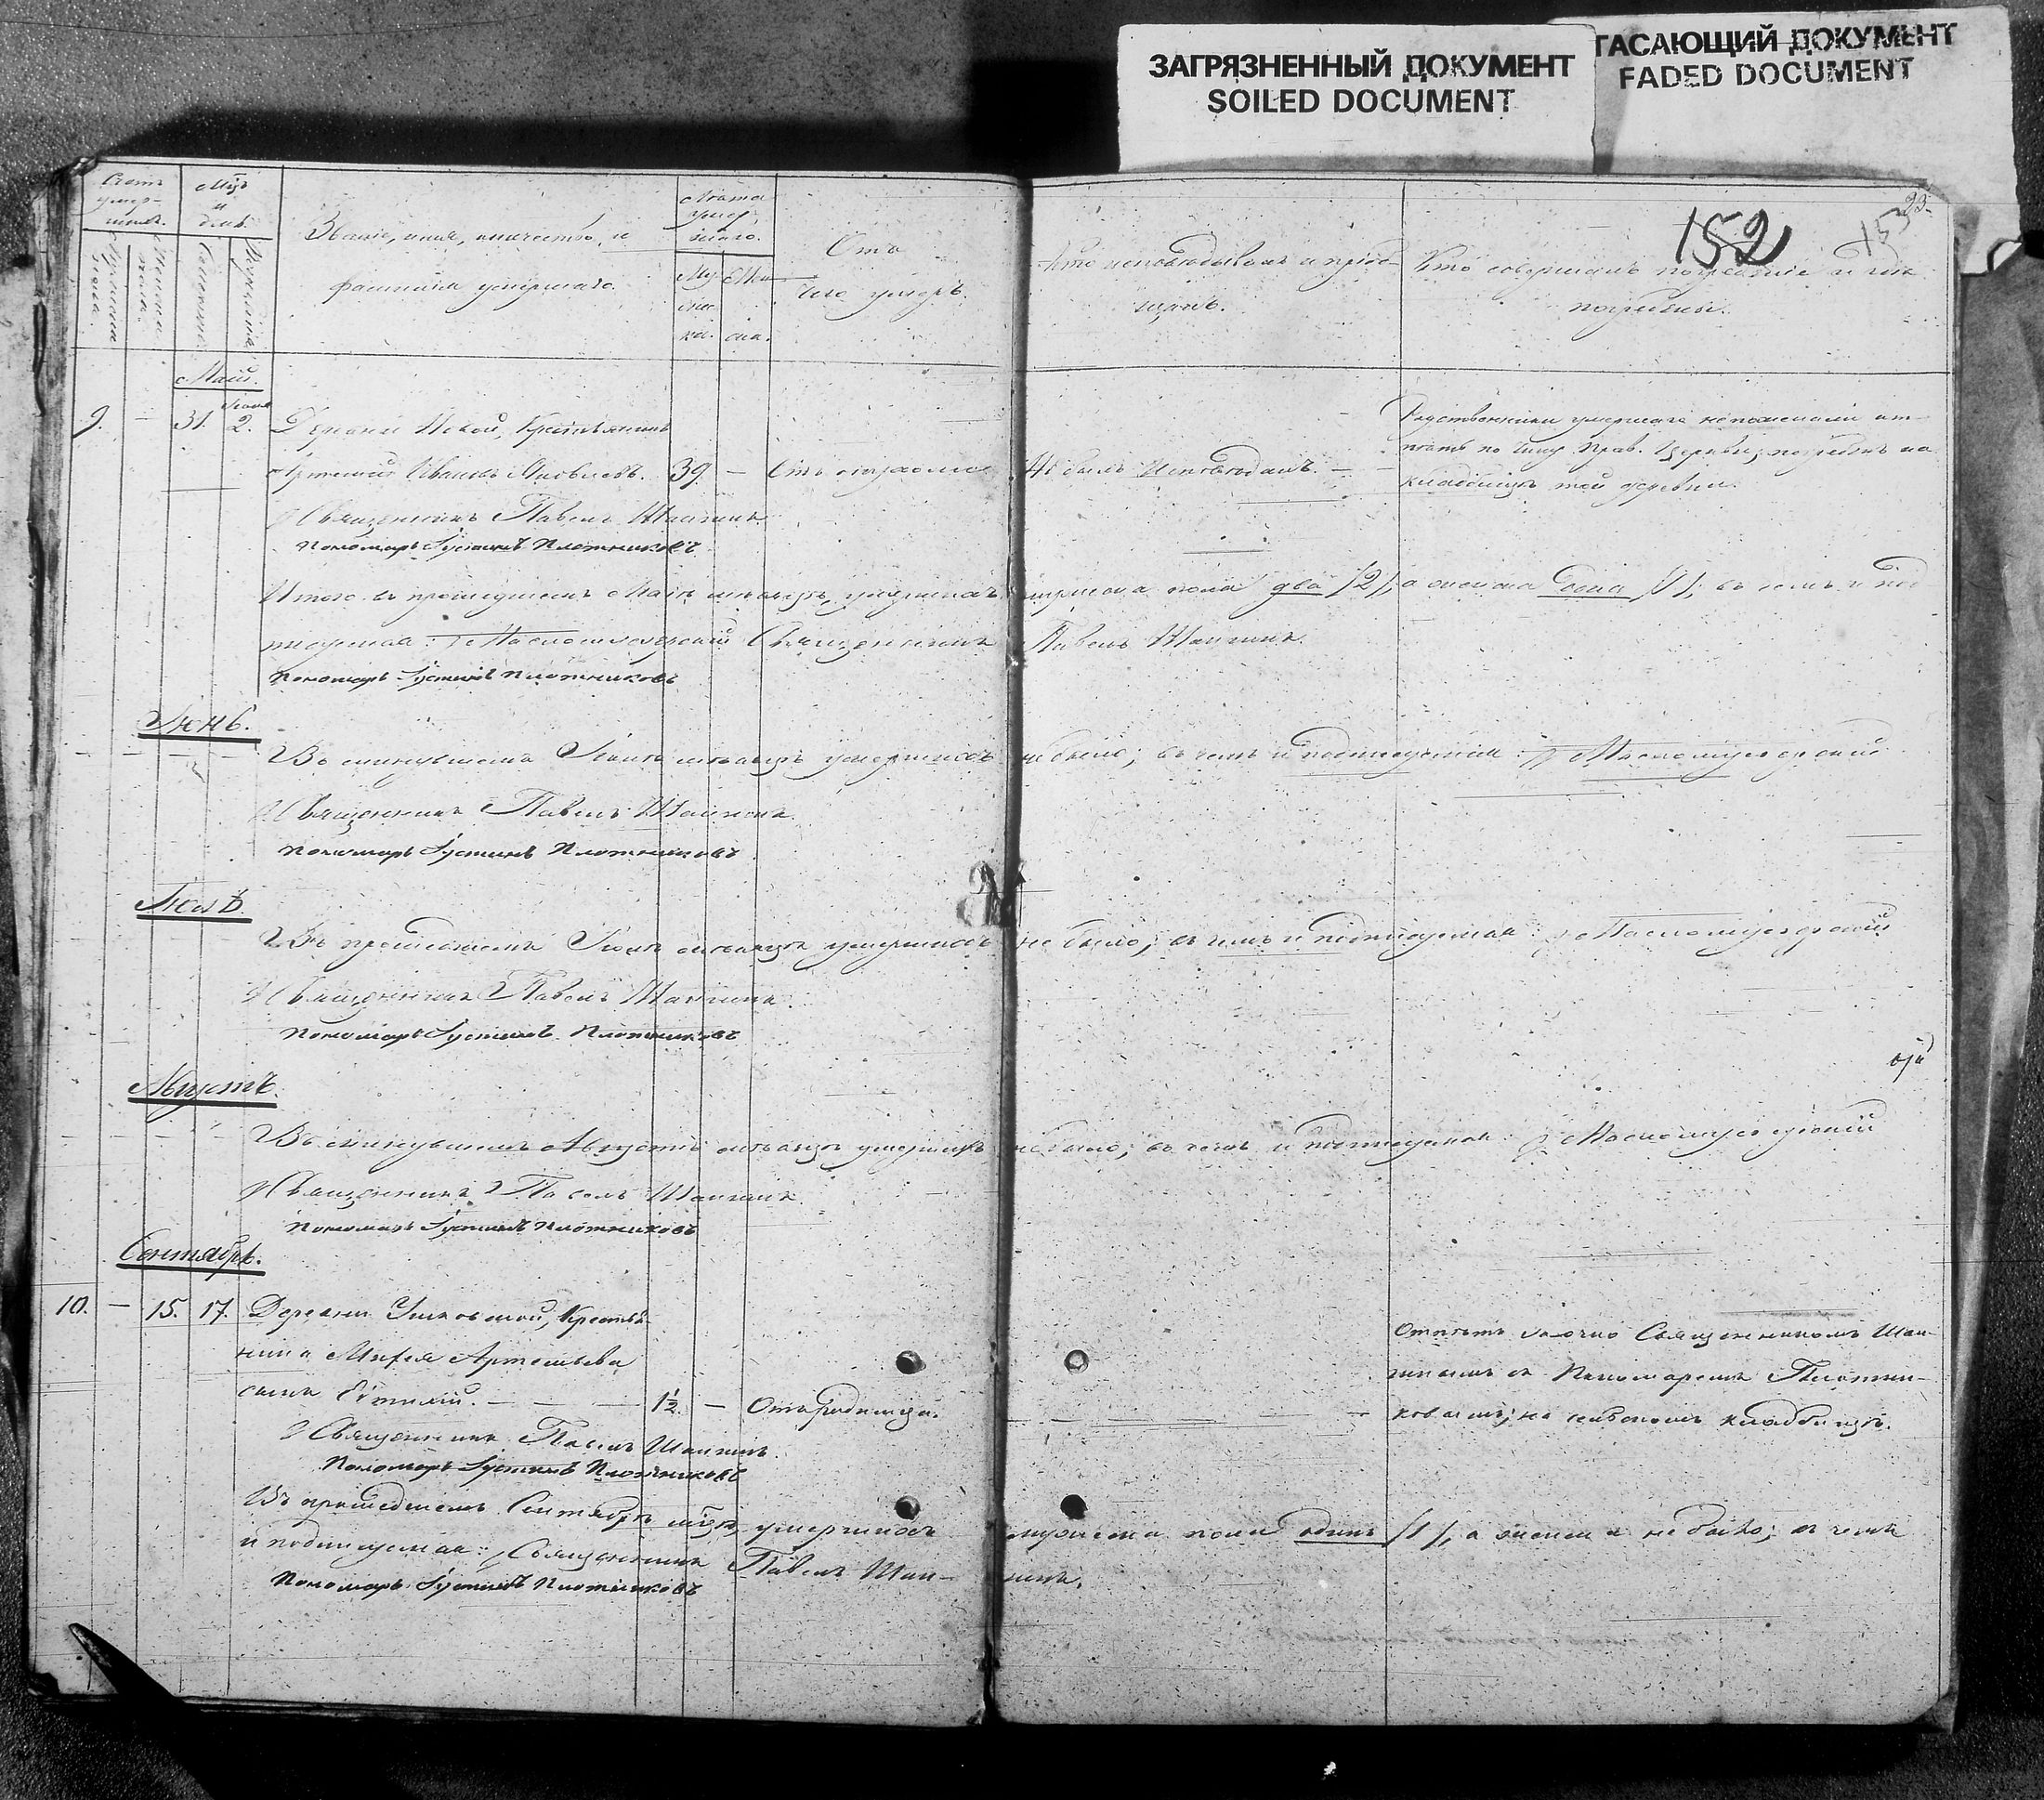 ЗАГРЯЗНЕННЫЙ ДОКУМЕНТ
SOILED DOCUMENT
ГАСАЮЩИЙ ДОКУМЕНТ
FADED DOCUMENT
152
153
93.
Счетъ умер-шихъ.
Мцъ и день.
Званіе, имя, отчество, и
фамилія умершаго.
Лѣта умер шаго.
Му-жес-ка.
Жен-ска.
Отъ
чего умеръ.
Кто исповѣдывалъ и пріоб-
щалъ.
Кто совершалъ погребеніе и гдѣ
погребены.
Май.
9. — 31. Іюня 2. Деревни Новой, Крестьянинъ
Иванъ Яковлевъ. 39. — Отъ
Не былъ Исповѣданъ. —
Родственники умершаго не пожелали от-
пѣть по чину Прав. Церкви; погребенъ на
кладбищѣ той деревни.
Священникъ Павелъ Шангинъ
Пономарь Іустинъ Плотниковъ
Итого въ прошедшемъ Маѣ мѣсяцѣ, умершихъ мужеска пола два /2/, а женска одна /1/; въ чемъ и под
писуемся: Масломуссрский Священникъ Павелъ Шангинъ.
Пономарь Іустинъ Плотниковъ
Іюнь.
Въ минувшемъ Іюнѣ мѣсяцѣ умершихъ не было; въ чемъ и подписуемся:
Священникъ Павелъ Шангинъ.
Пономарь Іустинъ Плотниковъ
Іюль.
Въ прошедшемъ Іюлѣ мѣсяцѣ умершихъ не было; въ чемъ и подписуемся:
Священникъ Павелъ Шангинъ.
Пономарь Іустинъ Плотниковъ
Августъ.
Въ минувшемъ Августѣ мѣсяцѣ умершихъ не было; въ чемъ и подписуемся:
Священникъ Павелъ Шангинъ.
Пономарь Іустинъ Плотниковъ
Сентябрь.
10. — 15. 17. Деревни Крестья-
нина Артемьева
сынъ Евтихій. — 1½. — Отъ родимца.
Отпѣтъ Священникомъ Шан-
гинымъ съ Пономаремъ Плотни-
ковымъ; на кладбищѣ.
Священникъ Павелъ Шангинъ
Пономарь Іустинъ Плотниковъ
Въ прошедшемъ Сентябрѣ мцѣ, умершихъ мужеска пола одинъ /1/, а женска не было; въ чемъ
и подписуемся: Священникъ Павелъ Шан-гинъ.
Пономарь Іустинъ Плотниковъ